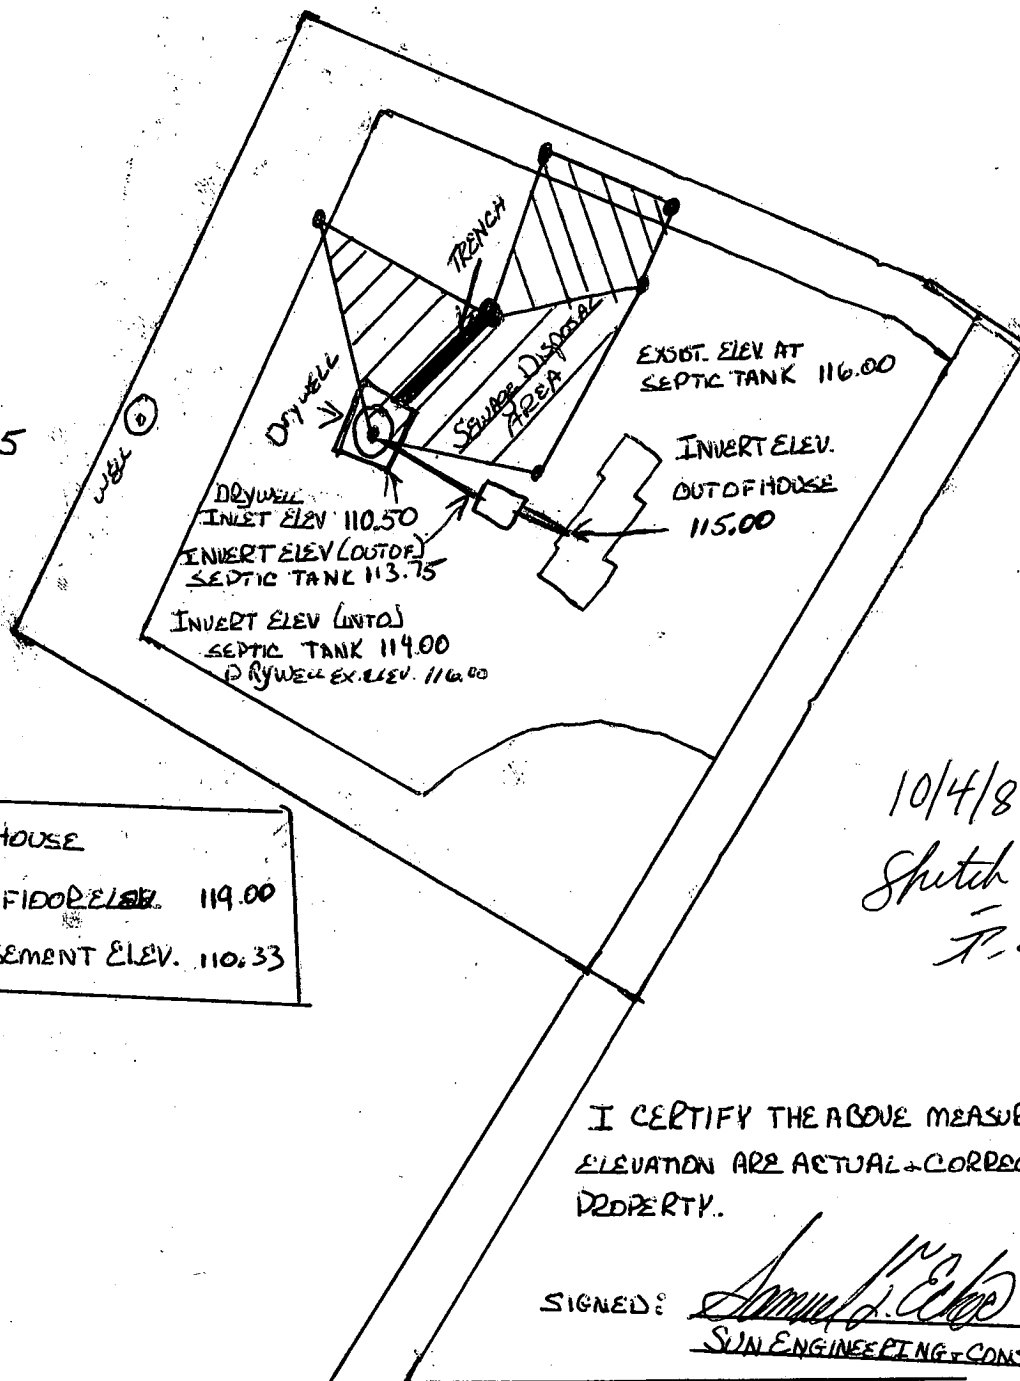 TRENCH
DRYWELL
SEWAGE DISPOSAL
AREA
EXSIST. ELEV AT
SEPTIC TANK 116.00
WELL
5
INVERT ELEV.
OUT OF HOUSE
115.00
DRYWELL
INLET ELEV 110.50
INVERT ELEV (OUTOF)
SEPTIC TANK 113.75
INVERT ELEV (INTO)
SEPTIC TANK 114.00
DRYWELL EX. ELEV. 116.00
HOUSE
FLOOR ELEV. 119.00
SEMENT ELEV. 110.33
10/4/8
Sketch
I CERTIFY THE ABOVE MEASUR
ELEVATION ARE ACTUAL & CORREC
PROPERTY.
SIGNED: Samuel
SUN ENGINEERING & CONS